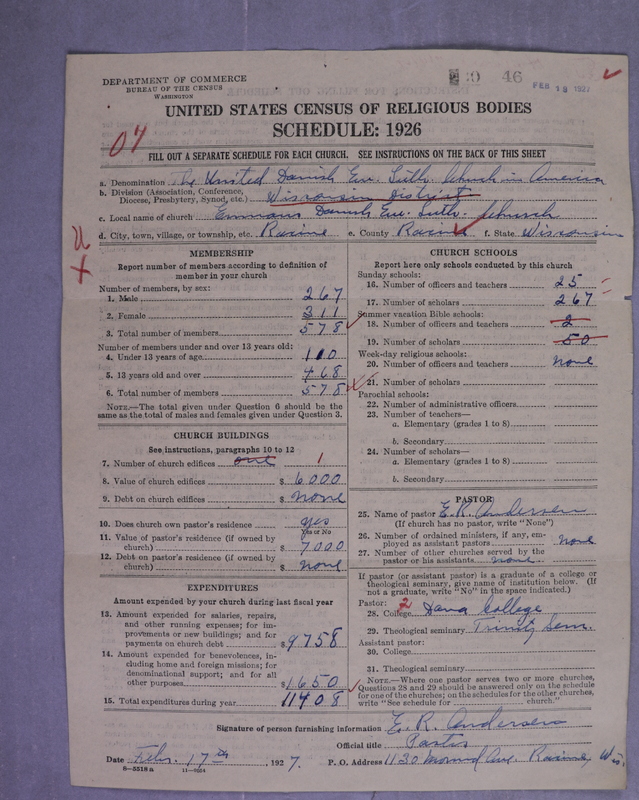 DEPARTMENT OF COMMERCE
BUREAU OF THE CENSUS
WASHINGTON
46
FEB 18 1927
UNITED STATES CENSUS OF RELIGIOUS BODIES
SCHEDULE: 1926
04
FILL OUT A SEPARATE SCHEDULE FOR EACH CHURCH. SEE INSTRUCTIONS ON THE BACK OF THIS SHEET
a. Denomination The United Danish Ev. Luth. Church in America
b. Division (Association, Conference, Diocese, Presbytery, Synod, etc.) Wisconsin District
c. Local name of church Emmaus Danish Ev. Luth. Church
d. City, town, village, or township, etc. Racine e. County Racine f. State Wisconsin
MEMBERSHIP
Report number of members according to definition of
member in your church
Number of members, by sex:
1. Male 267
2. Female 311
3. Total number of members 578
Number of members under and over 13 years old:
4. Under 13 years of age 110
5. 13 years old and over 468
6. Total number of members 578
NOTE.—The total given under Question 6 should be
the same as the total of males and females given under Question 3.
CHURCH BUILDINGS
See instructions, paragraphs 10 to 12
7. Number of church edifices one 1
8. Value of church edifices $ 6000
9. Debt on church edifices $ none
10. Does church own pastor's residence yes
Yes or No
11. Value of pastor's residence (if owned by
church) $ 7000
12. Debt on pastor's residence (if owned by
church) $ none
EXPENDITURES
Amount expended by your church during last fiscal year
13. Amount expended for salaries, repairs,
and other running expenses; for im-
provements or new buildings; and for
payments on church debt $ 9758
14. Amount expended for benevolences, in-
cluding home and foreign missions; for
denominational support; and for all
other purposes $ 1650
15. Total expenditures during year 11408
CHURCH SCHOOLS
Report here only schools conducted by this church
Sunday schools:
16. Number of officers and teachers 25
17. Number of scholars 267
Summer vacation Bible schools:
18. Number of officers and teachers 2
19. Number of scholars 50
Week-day religious schools:
20. Number of officers and teachers none
21. Number of scholars
Parochial schools:
22. Number of administrative officers
23. Number of teachers—
a. Elementary (grades 1 to 8)
b. Secondary
24. Number of scholars—
a. Elementary (grades 1 to 8)
b. Secondary
PASTOR
25. Name of pastor E. R. Andersen
(If church has no pastor, write "None")
26. Number of ordained ministers, if any, em-
ployed as assistant pastors none
27. Number of other churches served by the
pastor or his assistants none
If pastor (or assistant pastor) is a graduate of a college or
theological seminary, give name of institution below. (If
not a graduate, write "No" in the space indicated.)
Pastor:
28. College 2 Dana College
29. Theological seminary Trinity Sem.
Assistant pastor:
30. College
31. Theological seminary
NOTE.—Where one pastor serves two or more churches,
Questions 28 and 29 should be answered only on the schedule
for one of the churches; on the schedules for the other churches,
write "See schedule for church."
Signature of person furnishing information E. R. Andersen
Official title Pastor
Date Feb. 17th, 1927. P. O. Address 1120 Ave. Racine, Wis.
8—5518a 11—9024